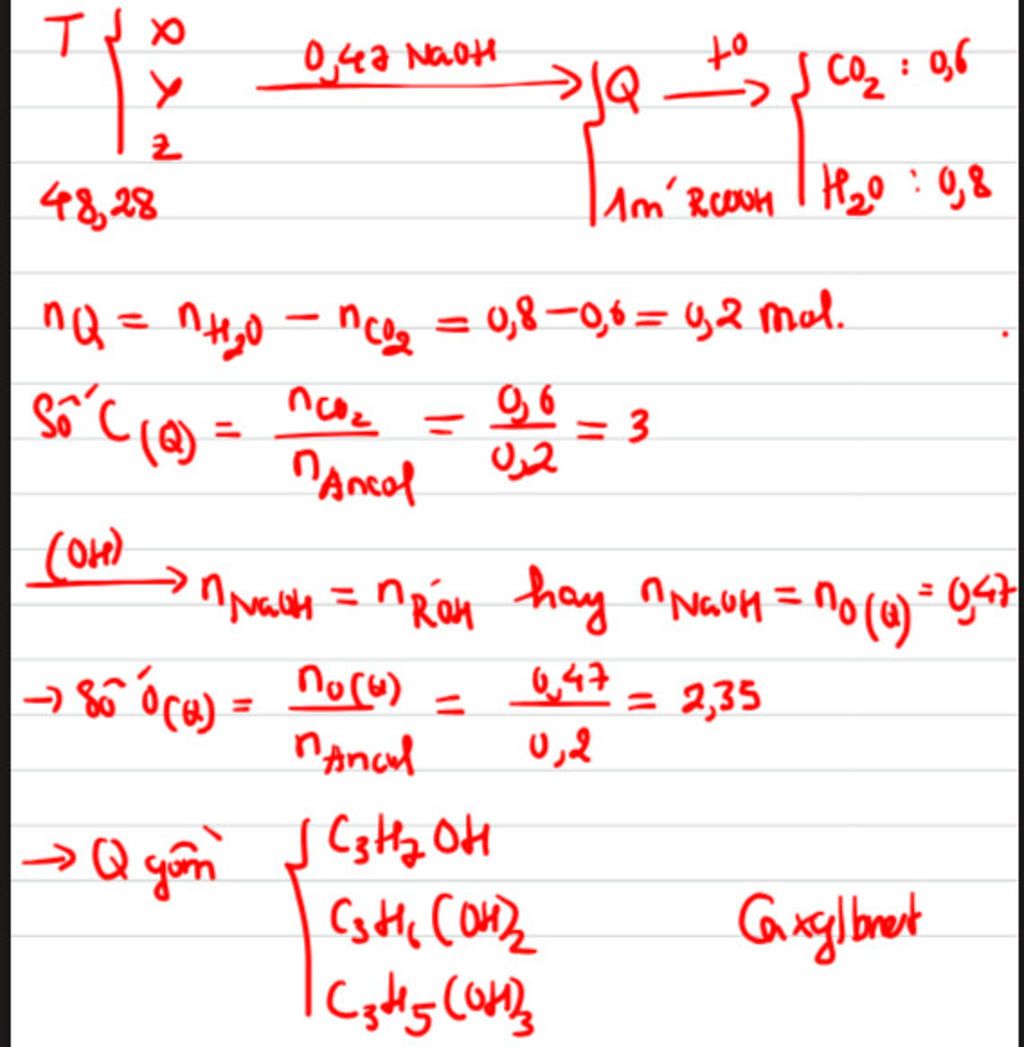 T { X
Y
Z
48,28
0,47 NaOH → { Q t° → { CO₂ : 0,6
1 muối RCOOH H₂O : 0,8
nQ = nH₂O − nCO₂ = 0,8 − 0,6 = 0,2 mol.
Số C(Q) = nCO₂ / nAncol = 0,6 / 0,2 = 3
(OH) → nNaOH = nR'OH hay nNaOH = nO(Q) = 0,47
→ Số O(Q) = nO(Q) / nAncol = 0,47 / 0,2 = 2,35
→ Q gồm { C₃H₇OH
C₃H₆(OH)₂
C₃H₅(OH)₃